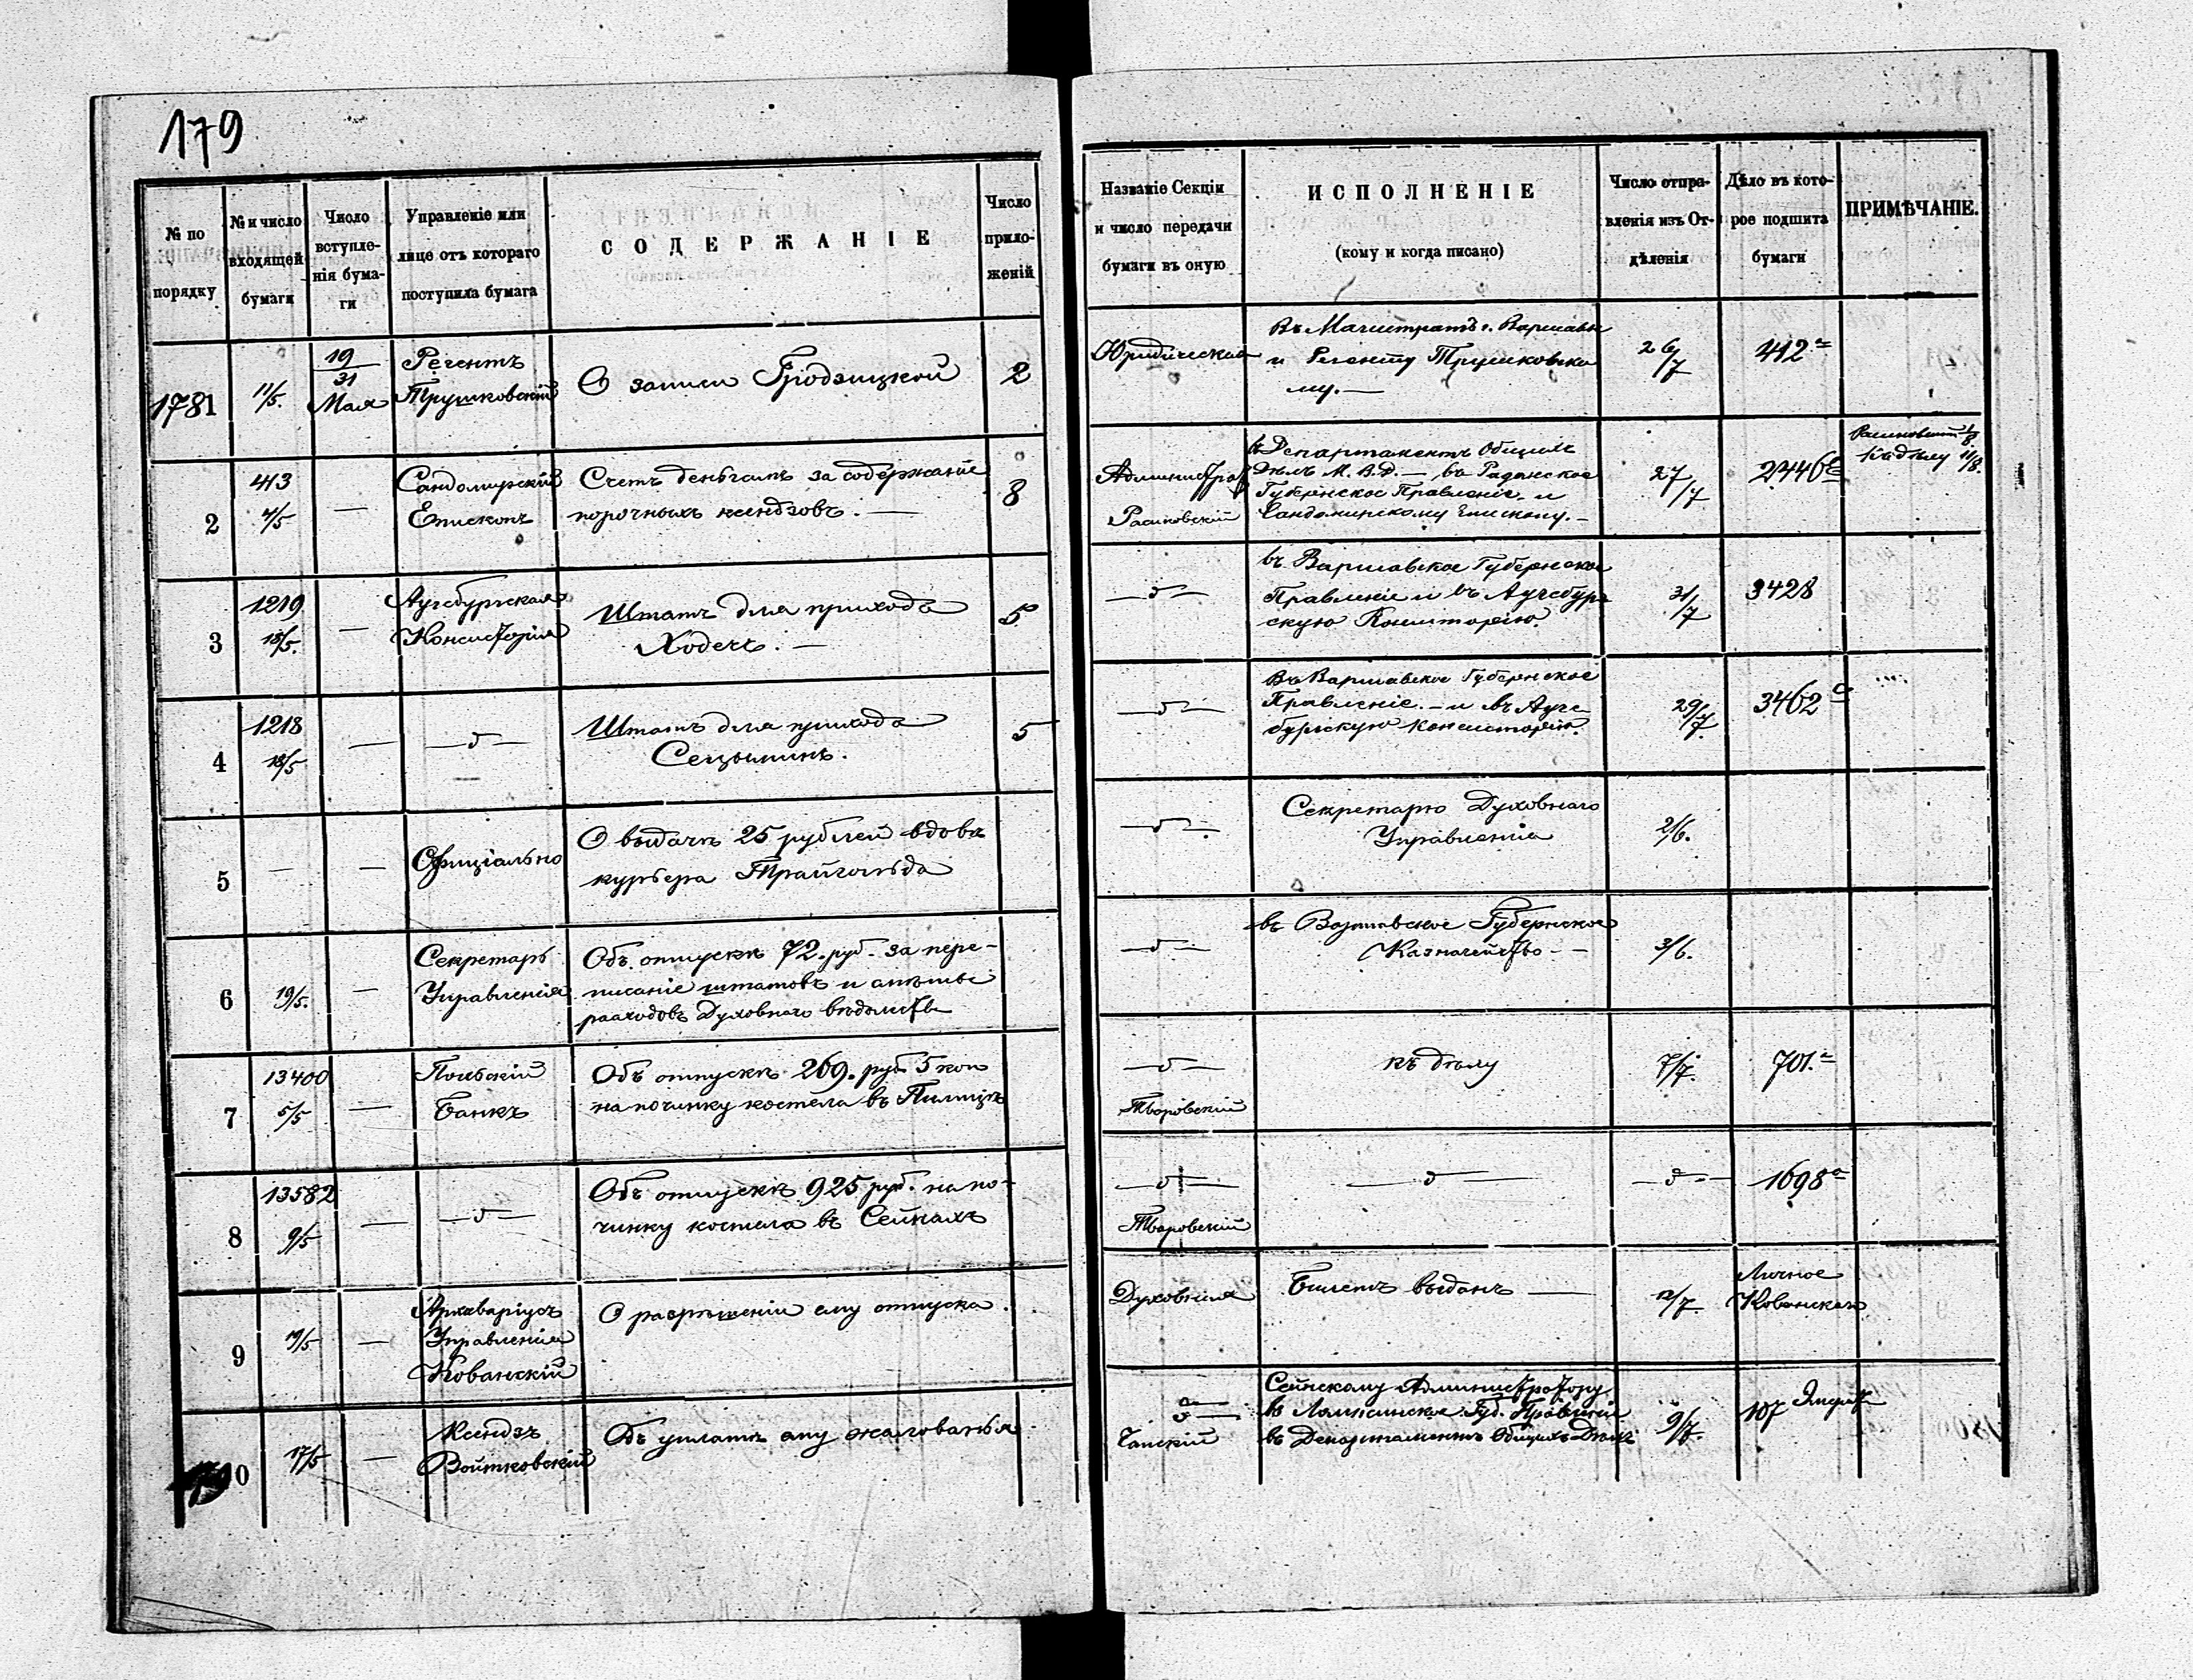 179
№ по
порядку
№ и число
входящей
бумаги
Число
вступле-
нія бума-
ги
Управленіе или
лице отъ котораго
поступила бумага
СОДЕРЖАНІЕ
Число
прило-
женій
Названіе Секціи
и число передачи
бумаги въ оную
ИСПОЛНЕНІЕ
(кому и когда писано)
Число отпра-
вленія изъ От-
дѣленія
Дѣло въ кото-
рое подшита
бумаги
ПРИМѢЧАНІЕ.
1781
11/5.
19
31
Мая
Регентъ
Трушковскій
О записи Гродзицкой
2
Юридическая
Въ Магистратъ г. Варшавы
и Регенту Трушковско
му. —
26/7
412 а
2
413
4/5
—
Сандомирскій
Епископъ
Счетъ деньгамъ за содержаніе
порочныхъ ксендзовъ. —
8
Администрат
Расиновскій
въ Департаментъ Общихъ
Дѣлъ М. В. Д. — въ Радомское
Губернское Правленіе и
Сандомирскому Епископу. —
27/7
2446
къ дѣлу 11/8.
3
1219
18/5.
—
Аугсбургская
Консисторія
Штатъ для прихода
Ходечъ. —
5
— д —
въ Варшавское Губернское
Правленіе и въ Аугсбург
скую Консисторію.
31/7
3428
4
1218
18/5
—
— д —
Штатъ для прихода
Сецыминъ.
5
— д —
Въ Варшавское Губернское
Правленіе. — и въ Аугс
бургскую Консисторію.
29/7
3462
5
—
—
Офиціально
О выдачѣ 25 рублей вдовѣ
курьера Трайгольда
— д —
Секретарю Духовнаго
Управленія
2/6.
6
19/5.
—
Секретарь
Управленія
Объ отпускѣ 72. руб. за пере-
писаніе штатовъ и смѣты
расходовъ Духовнаго вѣдомства
— д —
въ Варшавское Губернское
Казначейство —
3/6.
7
13400
5/5
—
Польскій
Банкъ
Объ отпускѣ 269. руб 5 коп
на починку костела въ Пилицѣ
— д —
Творовскій
къ дѣлу
7/7.
701. а
8
13582
9/5
—
— д —
Объ отпускѣ 925 руб. на по-
чинку костела въ Сейнахъ
— д —
Творовскій
— д —
— д —
1698 а
9
19/5
—
Архиваріусъ
Управленія
Кованскій
О разрѣшеніи ему отпуска.
Духовная
Билетъ выданъ —
12/7.
Личное
Кованскаго
0
17/5
—
Ксендзъ
Войтковскій
Объ уплатѣ ему жалованья
— д —
Чапскій
Сейнскому Администратору,
въ Ломжинское Губ. Правленіе
въ Департаментъ Общихъ Дѣлъ
9/7.
107